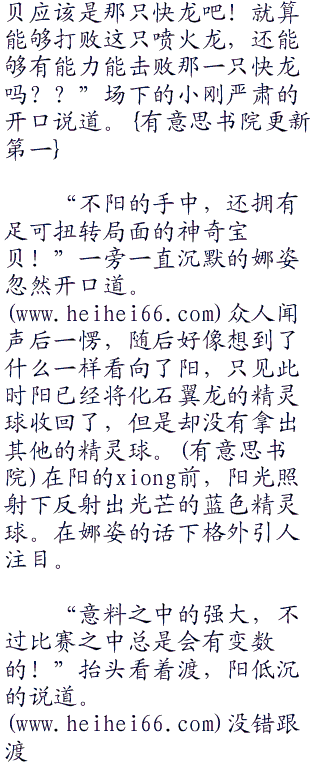 贝应该是那只快龙吧！就算
能够打败这只喷火龙，还能
够有能力能击败那一只快龙
吗？？”场下的小刚严肃的
开口说道。{有意思书院更新
第一}
“不阳的手中，还拥有
足可扭转局面的神奇宝
贝！”一旁一直沉默的娜姿
忽然开口道。
(www.heihei66.com)众人闻
声后一愣，随后好像想到了
什么一样看向了阳，只见此
时阳已经将化石翼龙的精灵
球收回了，但是却没有拿出
其他的精灵球。(有意思书
院)在阳的xiong前，阳光照
射下反射出光芒的蓝色精灵
球。在娜姿的话下格外引人
注目。
“意料之中的强大，不
过比赛之中总是会有变数
的！”抬头看着渡，阳低沉
的说道。
(www.heihei66.com)没错跟
渡